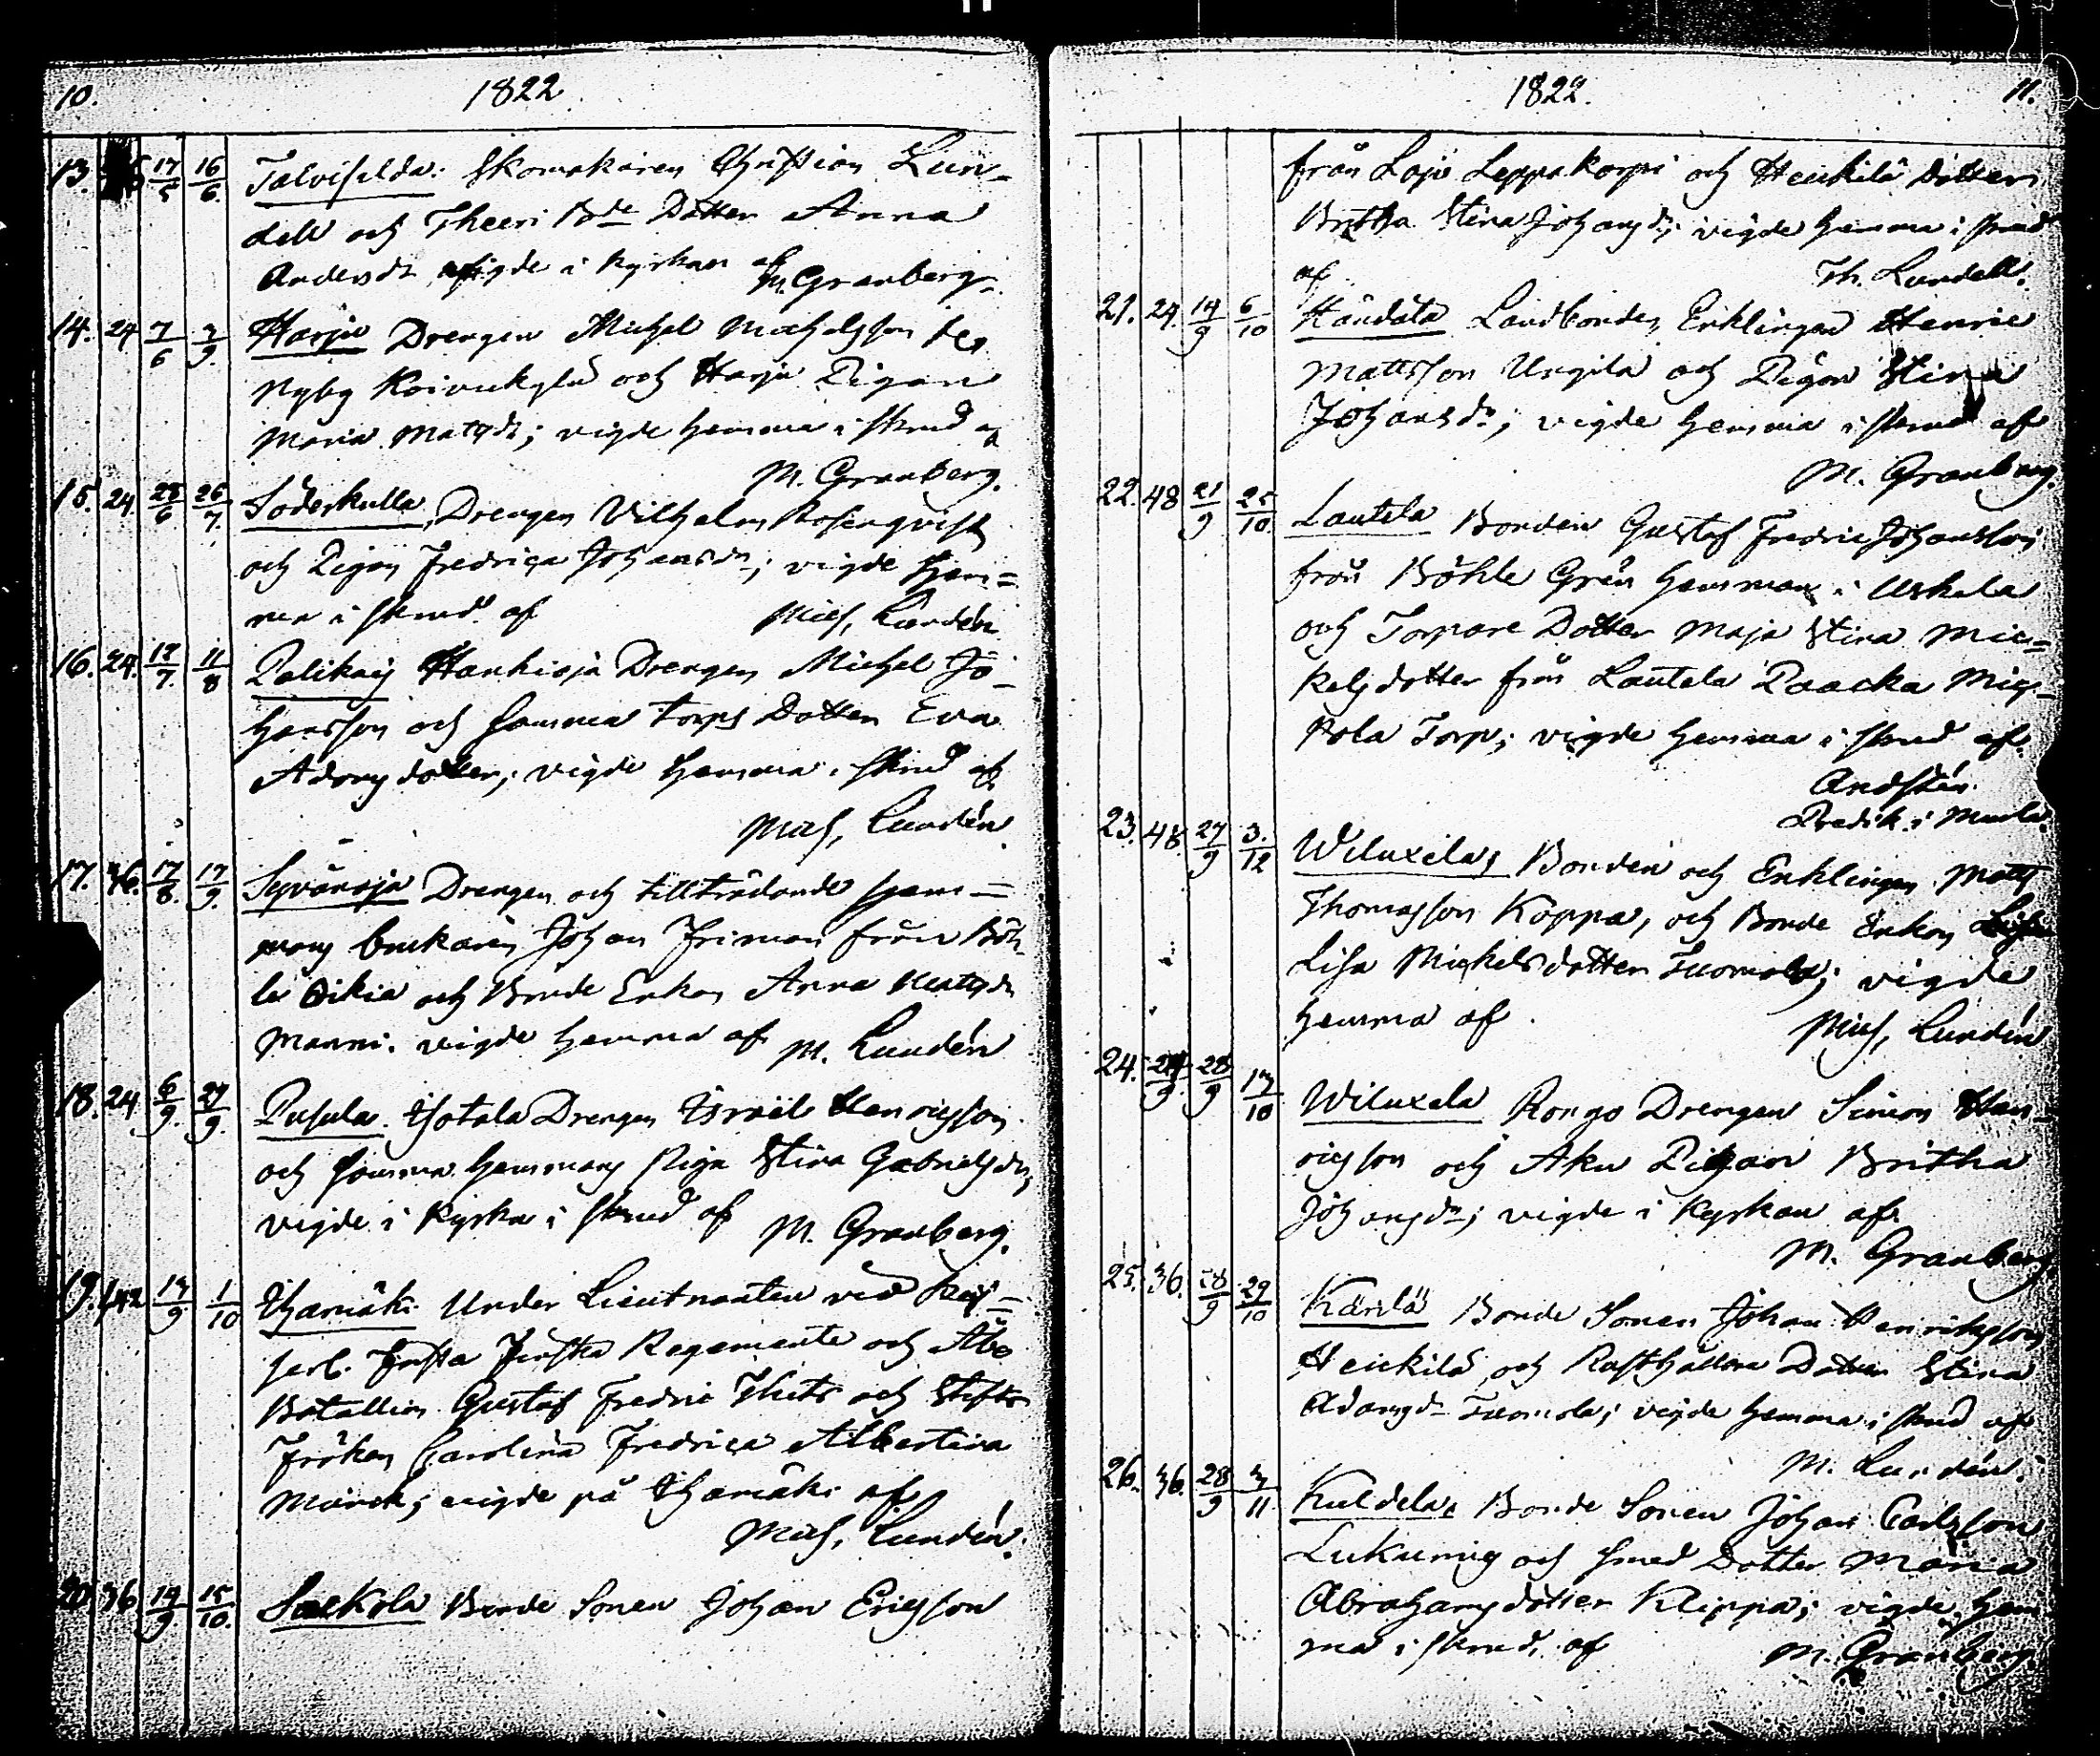 10. 1822
13. 17/5 16/6 Talvisilda: Skomakaren Christian Lun-
dell och Theeri Bde Dotter Anna
Andersdr vigde i Kyrkan af M. Granberg.
14. 24 7/6 7/9 Harju Drengen Michel Michelsson
Nyby Koivukylä och Harju Pigan
Maria Matsdr; vigde hemma i skrud af
M. Granberg.
15. 24. 28/6 26/7 Söderkulla, Drengen Vilhelm Rosenqvist
och Pigan Fredrica Johansdr; vigde hem=
ma i skrud af Mich. Lundén
16. 24. 12/7. 11/8 Palikais Hankioja Drengen Michel Jo-
hansson och samma torps Dotter Eva
Adamsdotter; vigde hemma i skrud af
Mich. Lundén.
17. 36. 17/8. 17/9. Syvänoja Drengen och tillträdande hem=
mans brukaren Johan Friman från Böh-
le Oikia och Bonde Enkan Anna Mattsdr
Manni. vigde hemma af M. Lundén
18. 24 6/9. 27/9. Pusula. Isotala Drengen Israel Henricsson
och samma hemmans Piga Stina Gabrielsdr,
vigde i Kyrka i skrud af M. Granberg.
19. 142 13/9 1/10 Ihamäki Under Lieutnanten vid Kej=
serl. Första Finska Regemente och Åbo
Batallion Gustaf Fredric Thits och Stifts
Fröken Carolina Fredrica Albertina
Munck; vigde på Ihamäki af
Mich. Lundén.
20. 36 14/9. 15/10. Saukola Bonde Sonen Johan Ericsson
1822. 11.
från Lojo Leppäkorpi och Heickilä Dotter
Britha Stina Johansdr; vigde hemma i skrud
af Th. Lundell.
21. 24. 14/9 6/10 Kändälä Landbonden, Enklingen Henric
Mattsson Ungila och Pigan Stina
Johansdr; vigde hemma i skrud af
M. Granberg.
22. 48 21/9 25/10. Lautela Bonden Gustaf Fredric Johansson
från Böhle Grän hemman i Uskela
och Torpare Dotter Maja Stina Mic-
kelsdotter från Lautela Paacka Mic-
kola Torp; vigde hemma i skrud af
Andstén.
Predik. i Muurla.
23. 48. 27/9 3./12 Wiluxela, Bonden och Enklingen Matts
Thomasson Koppa, och Bonde Enkan
Lisa Mickelsdotter Tuomola; vigde
hemma af Mich. Lundén
24. 24/9. 28/9 13/10 Wiluxela Rongo Drengen Simon Hen-
ricsson och Aku Pigan Britha
Johansdr; vigde i Kyrkan af
M. Granberg
25. 36. 28/9 29/10 Kärilä Bonde Sonen Johan Henricsson
Heickilä, och Rusthållare Dotter Stina
Adamsdr Tuomola; vigde hemma i skrud af
M. Lundén.
26. 36. 28/9 3/11. Kuldela, Bonde Sonen Johan Carlsson
Lukumies och smed Dotter Maria
Abrahamsdotter Kleppa; vigde hem
ma i skrud, af M. Granberg.